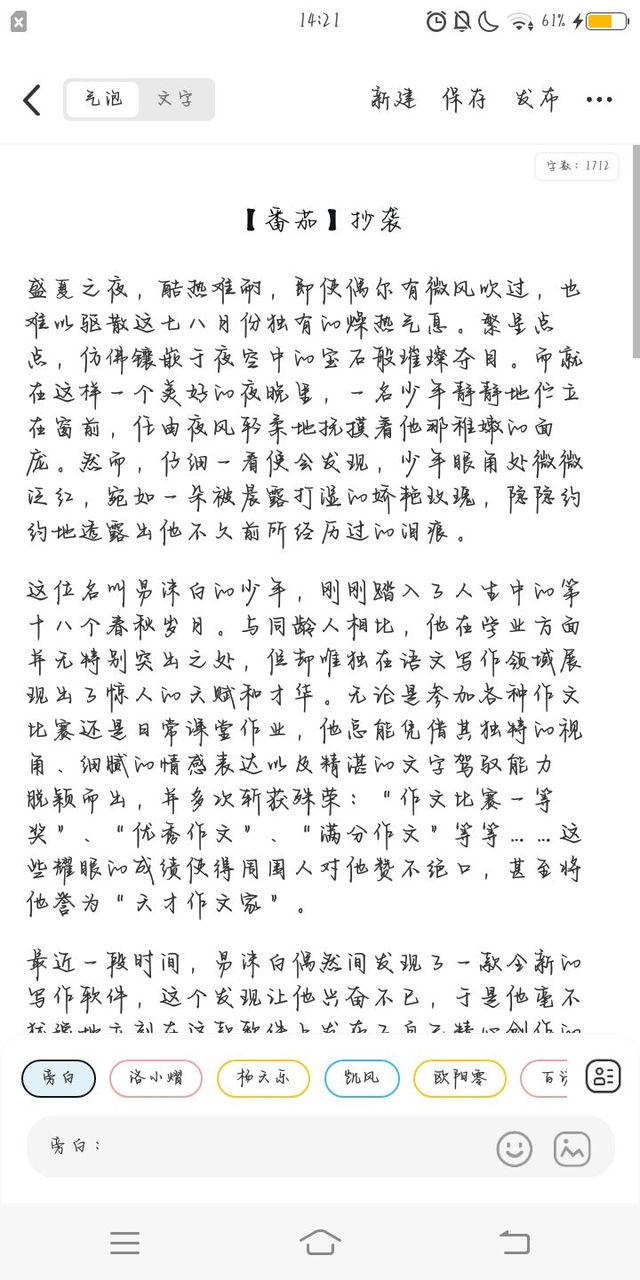 14:21
61%
气泡 文字 新建 保存 发布
字数：1712
【番茄】抄袭
盛夏之夜，酷热难耐，即使偶尔有微风吹过，也
难以驱散这七八月份独有的燥热气息。繁星点
点，仿佛镶嵌于夜空中的宝石般璀璨夺目。而就
在这样一个美好的夜晚里，一名少年静静地伫立
在窗前，任由夜风轻柔地抚摸着他那稚嫩的面
庞。然而，仔细一看便会发现，少年眼角处微微
泛红，宛如一朵被晨露打湿的娇艳玫瑰，隐隐约
约地透露出他不久前所经历过的泪痕。
这位名叫易沫白的少年，刚刚踏入了人生中的第
十八个春秋岁月。与同龄人相比，他在学业方面
并无特别突出之处，但却唯独在语文写作领域展
现出了惊人的天赋和才华。无论是参加各种作文
比赛还是日常课堂作业，他总能凭借其独特的视
角、细腻的情感表达以及精湛的文字驾驭能力
脱颖而出，并多次斩获殊荣：“作文比赛一等
奖”、“优秀作文”、“满分作文”等等……这
些耀眼的成绩使得周围人对他赞不绝口，甚至将
他誉为“天才作文家”。
最近一段时间，易沫白偶然间发现了一款全新的
写作软件，这个发现让他兴奋不已，于是他毫不
旁白 洛小熠 杨天乐 凯风 欧阳零 百
旁白：